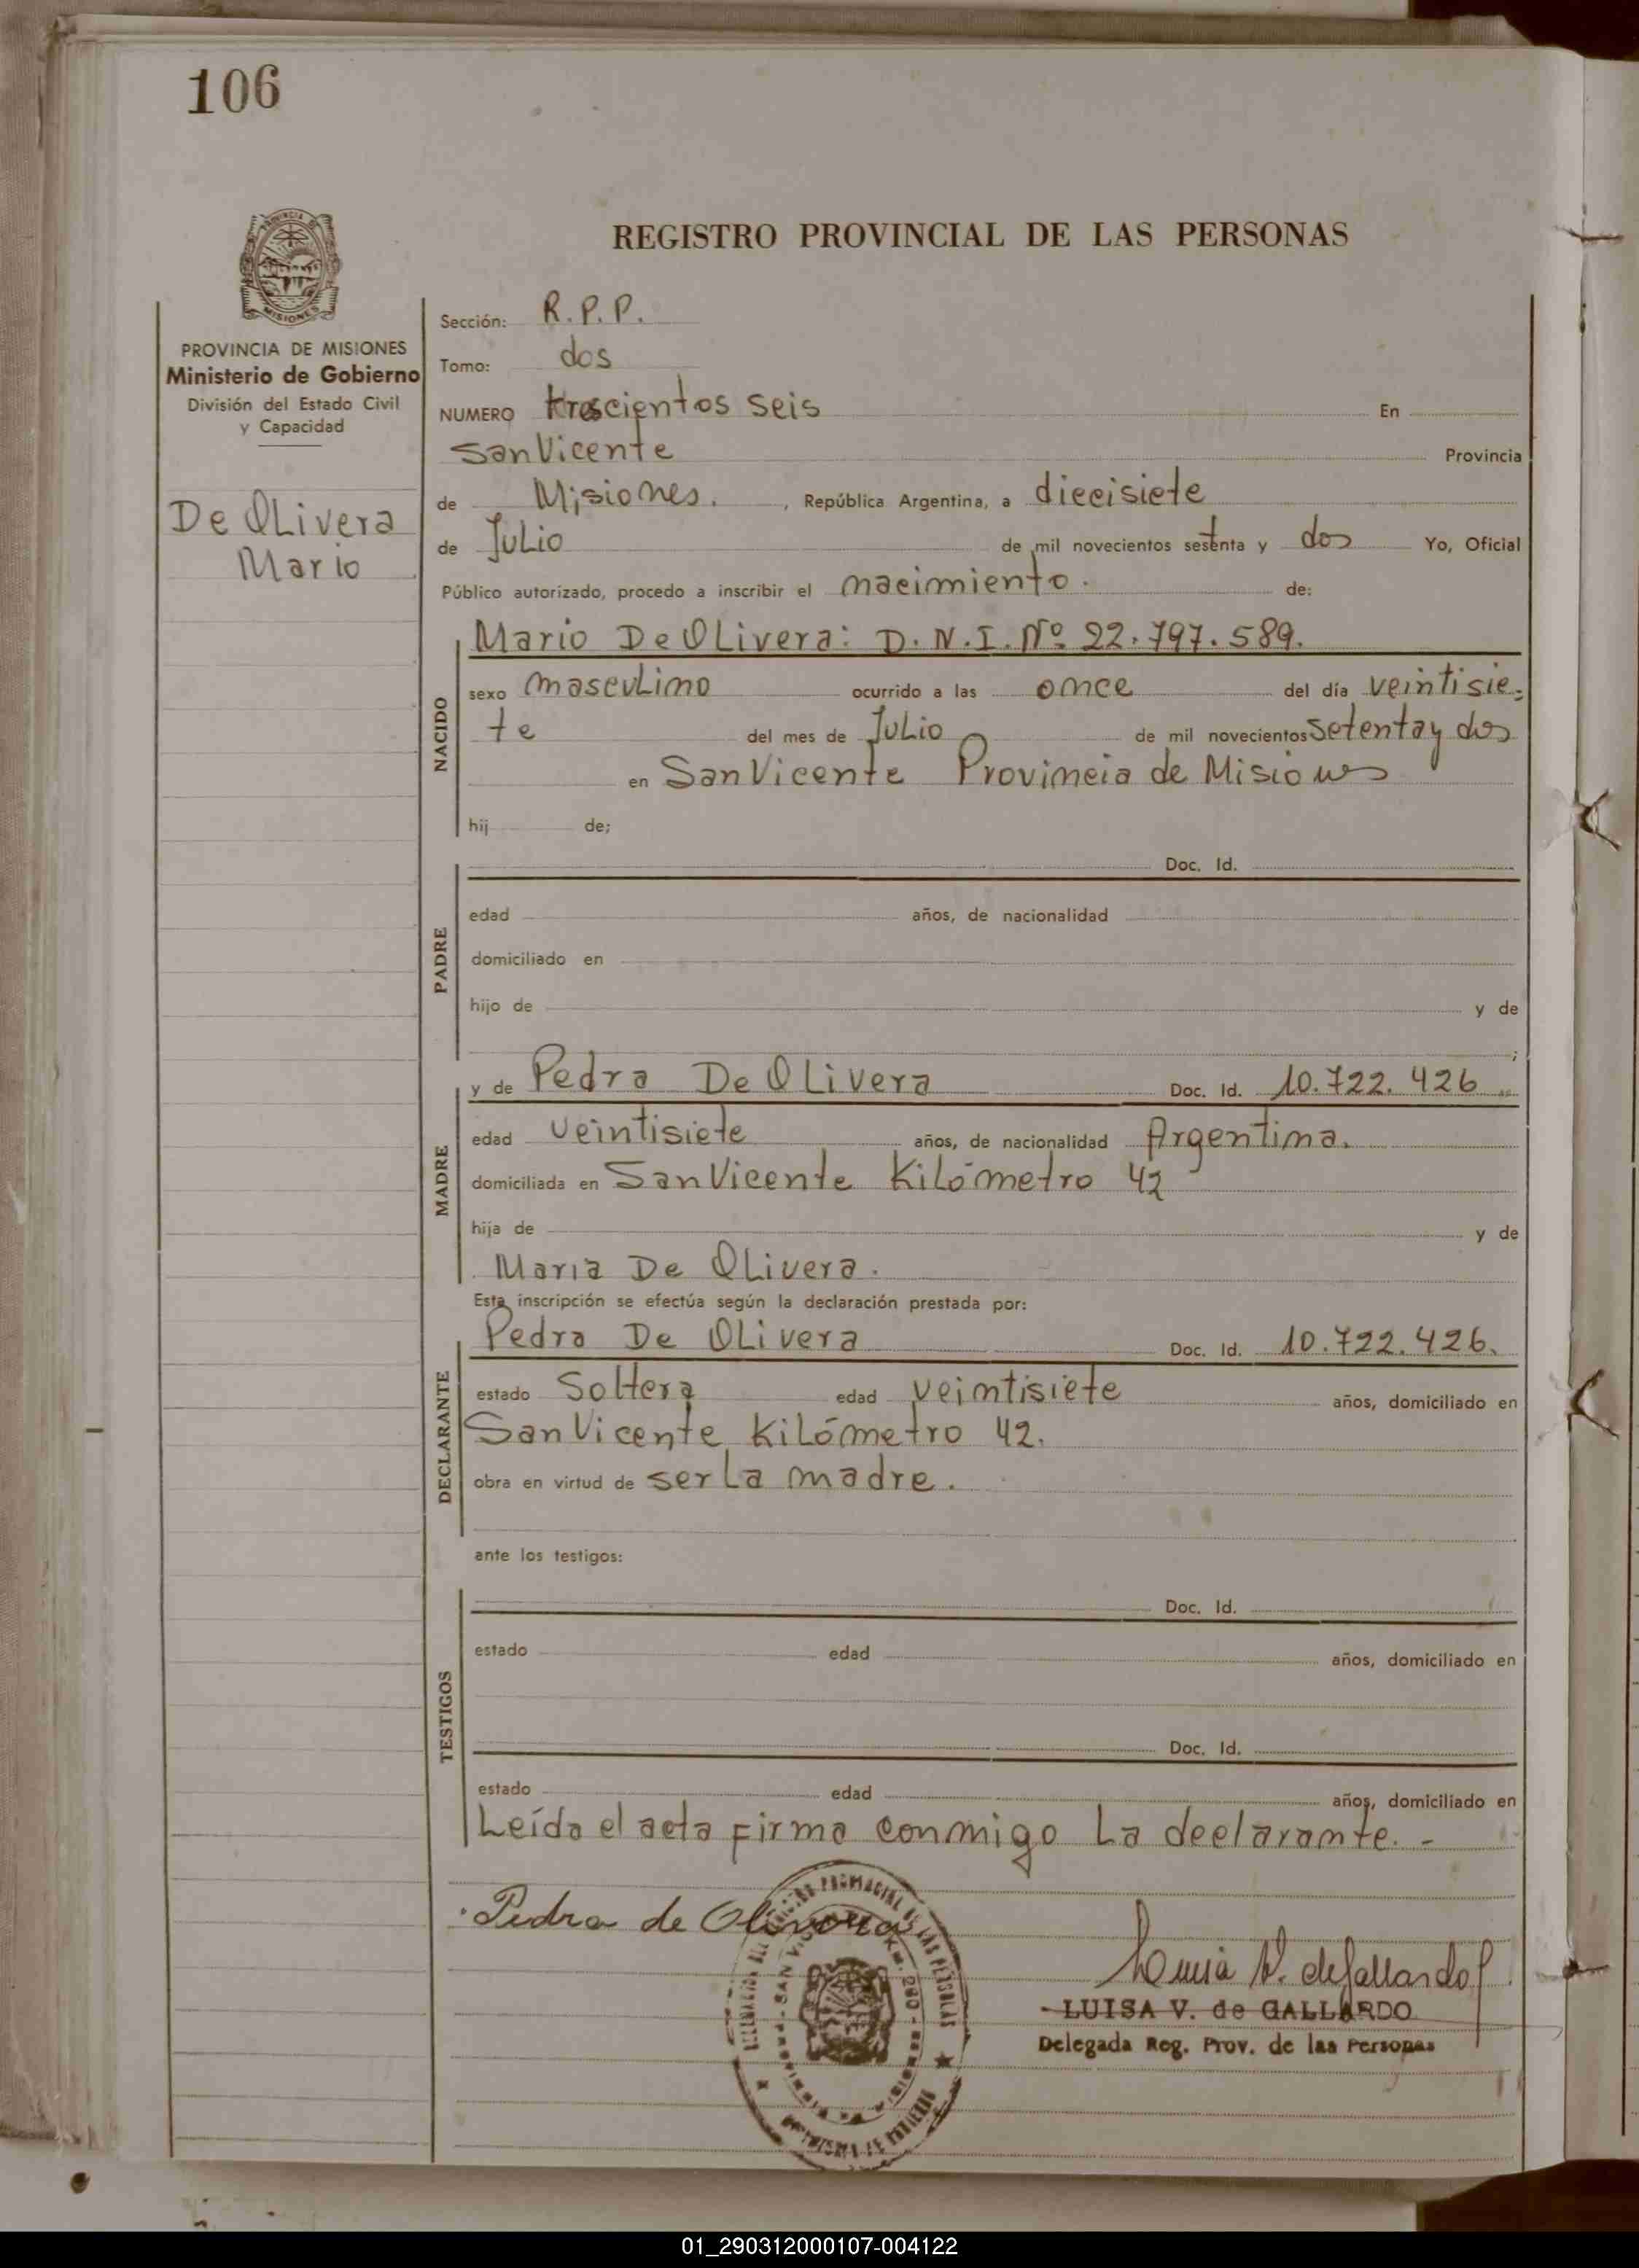 106
REGISTRO PROVINCIAL DE LAS PERSONAS
MISIONES
PROVINCIA DE MISIONES
Ministerio de Gobierno
División del Estado Civil
y Capacidad
De OLivera
Mario
Sección: R.P.P.
Tomo: dos
NUMERO trescientos seis En
San Vicente Provincia
de Misiones. , República Argentina, a diecisiete
de Julio de mil novecientos setenta y dos Yo, Oficial
Público autorizado, procedo a inscribir el nacimiento. de:
NACIDO
Mario De OLivera: D.N.I. Nº 22.797.589.
sexo masculino ocurrido a las once del día veintisie=
te del mes de Julio de mil novecientos setenta y dos
en San Vicente Provincia de Misiones
hij de;
PADRE
Doc. Id.
edad años, de nacionalidad
domiciliado en
hijo de y de
;
MADRE
y de Pedra De OLivera Doc. Id. 10.722.426
edad veintisiete años, de nacionalidad Argentina.
domiciliada en San Vicente Kilómetro 42
hija de y de
Maria De OLivera.
Esta inscripción se efectúa según la declaración prestada por:
DECLARANTE
Pedra De OLivera Doc. Id. 10.722.426.
estado Soltera edad veintisiete años, domiciliado en
San Vicente Kilómetro 42.
obra en virtud de ser La madre.
ante los testigos:
TESTIGOS
Doc. Id.
estado edad años, domiciliado en
Doc. Id.
estado edad años, domiciliado en
Leída el acta firma conmigo La declarante. -
Pedra de Olivera
Luisa V. de Gallardo
LUISA V. de GALLARDO
Delegada Reg. Prov. de las Personas
01_290312000107-004122